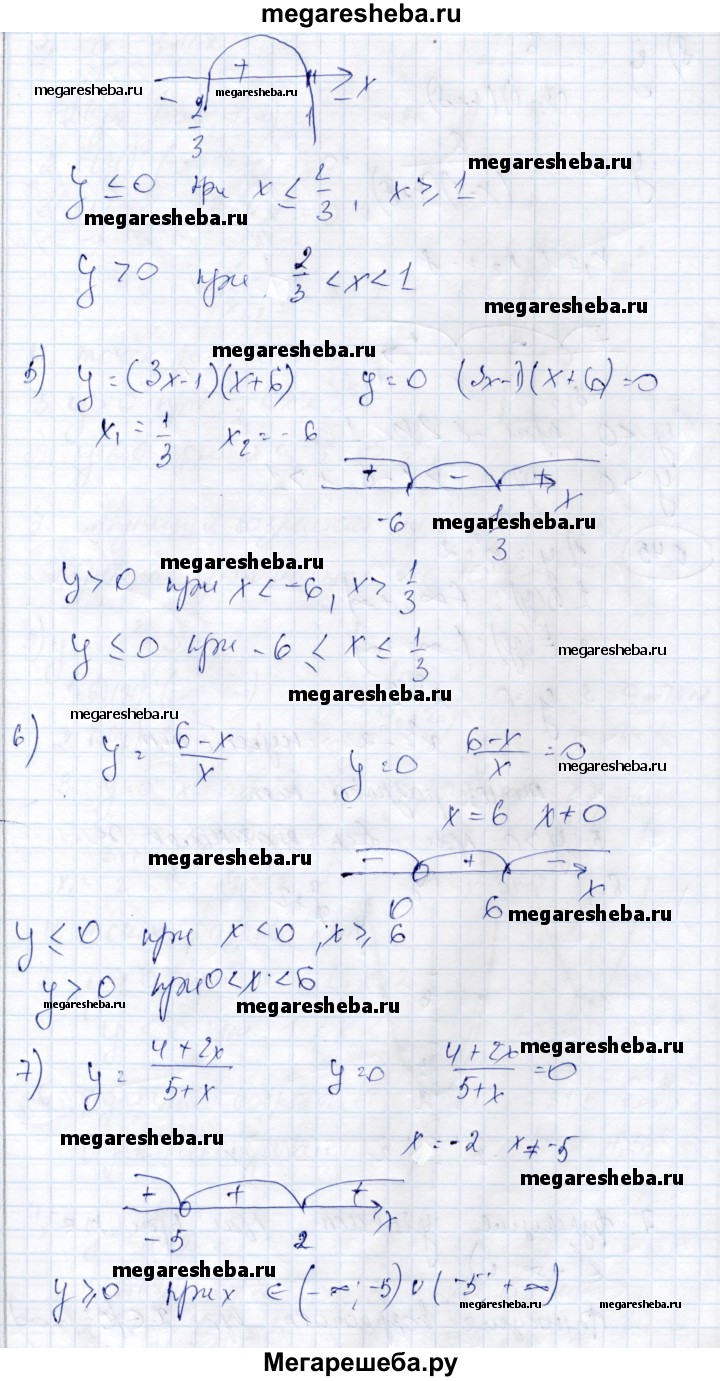 megaresheba.ru
+
megaresheba.ru - megaresheba.ru x
2/3 1
megaresheba.ru
y ≤ 0 при x ≤ 2/3, x ≥ 1
megaresheba.ru
y > 0 при 2/3 < x < 1
megaresheba.ru
megaresheba.ru
5) y = (3x-1)(x+6) y = 0 (3x-1)(x+6) = 0
x₁ = 1/3 x₂ = -6
+ - + x
-6 megaresheba.ru 1/3
megaresheba.ru
y > 0 при x < -6, x > 1/3
y ≤ 0 при -6 ≤ x ≤ 1/3 megaresheba.ru
megaresheba.ru
megaresheba.ru
6) y = (6-x)/x y = 0 (6-x)/x = 0
megaresheba.ru
x = 6 x ≠ 0
megaresheba.ru
- + - x
0 6 megaresheba.ru
y ≤ 0 при x < 0; x ≥ 6
y > 0 при 0 < x < 6
megaresheba.ru megaresheba.ru
megaresheba.ru
7) y = (4+2x)/(5+x) y = 0 (4+2x)/(5+x) = 0
megaresheba.ru
x = -2 x ≠ -5
megaresheba.ru
+ + + x
-5 2
megaresheba.ru
y ≥ 0 при x ∈ (-∞; -5) ∪ (-5; +∞)
megaresheba.ru megaresheba.ru
Мегарешеба.ру